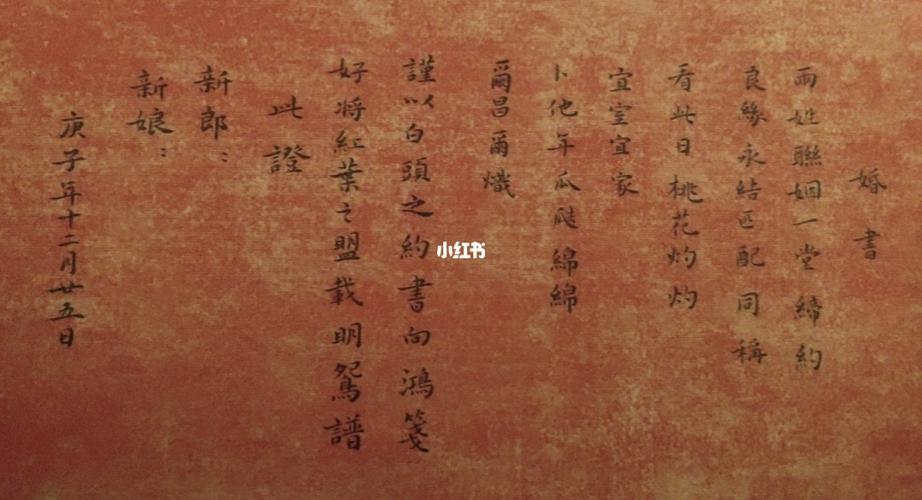 婚書
兩姓聯姻一堂締約
良緣永結匹配同稱
看此日桃花灼灼
宜室宜家
卜他年瓜瓞綿綿
爾昌爾熾
謹以白頭之約書向鴻箋
好將紅葉之盟載明鴛譜
此證
新郎：
新娘：
庚子年十二月廿五日
小红书